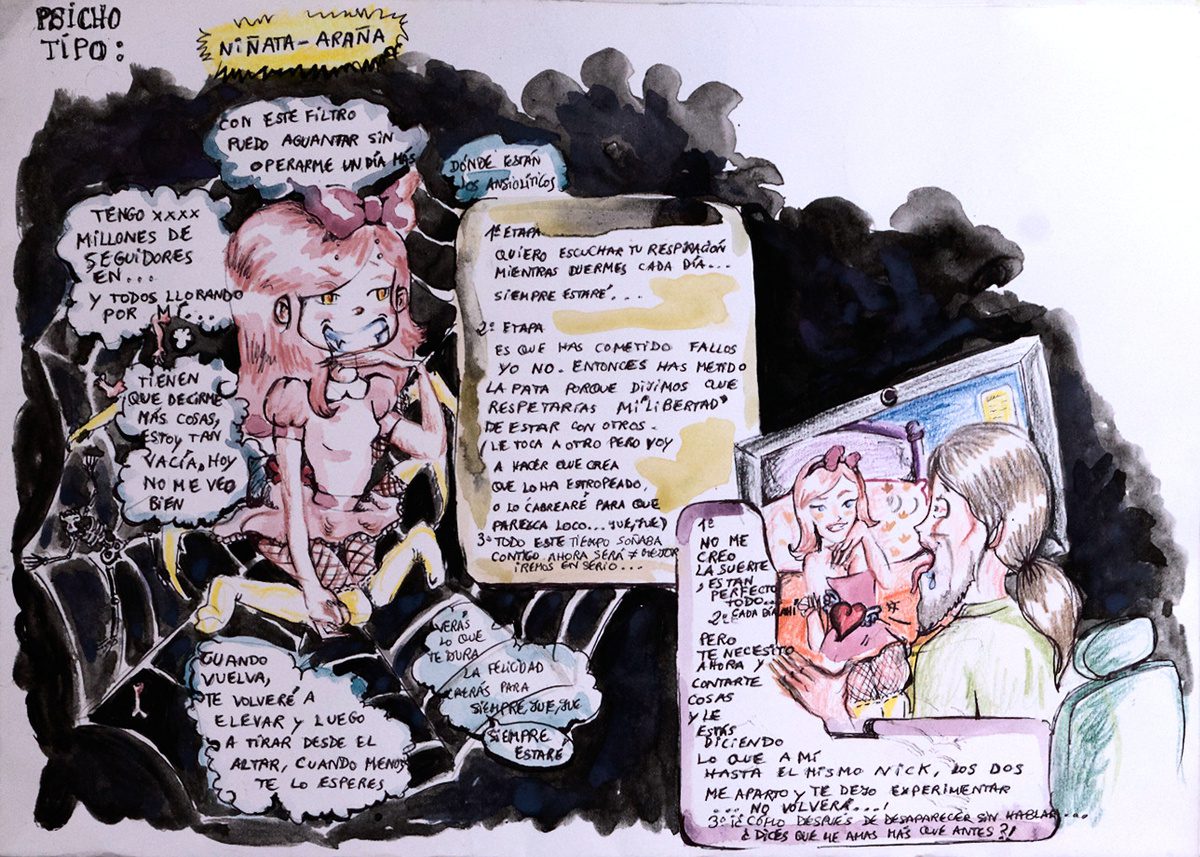 PSICHO
TIPO:
NIÑATA-ARAÑA
CON ESTE FILTRO
PUEDO AGUANTAR SIN
OPERARME UN DÍA MÁS
DÓNDE ESTÁN
LOS ANSIOLÍTICOS
TENGO XXXX
MILLONES DE
SEGUIDORES
EN...
Y TODOS LLORANDO
POR MÍ...
TIENEN
QUE DECIRME
MÁS COSAS,
ESTOY TAN
VACÍA, HOY
NO ME VEO
BIEN
1ª ETAPA
QUIERO ESCUCHAR TU RESPIRACIÓN
MIENTRAS DUERMES CADA DÍA...
SIEMPRE ESTARÉ...
2ª ETAPA
ES QUE HAS COMETIDO FALLOS
YO NO. ENTONCES HAS METIDO
LA PATA PORQUE DIJIMOS QUE
RESPETARÍAS MI "LIBERTAD"
DE ESTAR CON OTROS.
(LE TOCA A OTRO PERO VOY
A HACER QUE CREA
QUE LO HA ESTROPEADO,
O LO CABREARÉ PARA QUE
PAREZCA LOCO... JUE, JUE)
3ª TODO ESTE TIEMPO SOÑABA
CONTIGO AHORA SERÁ ≠ MEJOR
IREMOS EN SERIO...
CUANDO
VUELVA,
TE VOLVERÉ A
ELEVAR Y LUEGO
A TIRAR DESDE EL
ALTAR, CUANDO MENOS
TE LO ESPERES
VERÁS
LO QUE
TE DURA
LA FELICIDAD
CAERÁS PARA
SIEMPRE JUE, JUE
SIEMPRE
ESTARÉ
1ª
NO ME
CREO
LA SUERTE
, ES TAN
PERFECTO
TODO...
CADA DÍA AHÍ
2ª
PERO
TE NECESITO
AHORA Y
CONTARTE
COSAS
Y LE
ESTÁS
DICIENDO
LO QUE A MÍ
HASTA EL MISMO NICK, LOS DOS
ME APARTO Y TE DEJO EXPERIMENTAR
... NO VOLVERÁ...!
3ª ¡¿CÓMO DESPUÉS DE DESAPARECER SIN HABLAR...
¿DICES QUE ME AMAS MÁS QUE ANTES?!